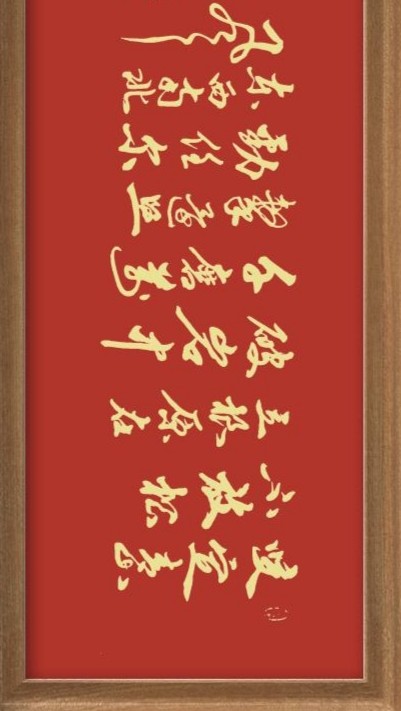 咬定青山
不放松
立根原在
破岩中
千磨万
击还坚
劲任尔
东西南北
风